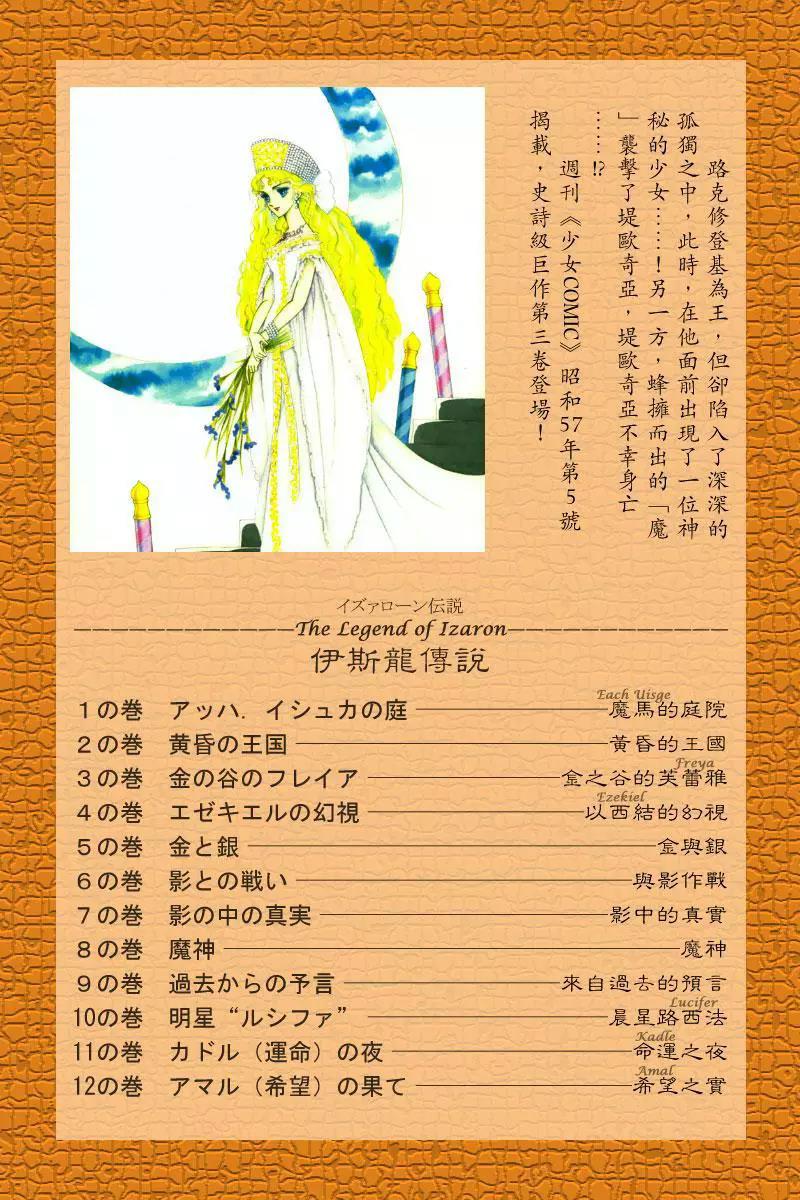 路克修登基為王，但卻陷入了深深的
孤獨之中，此時，在他面前出現了一位神
秘的少女……！另一方，蜂擁而出的「魔
」襲擊了堤歐奇亞，堤歐奇亞不幸身亡
……!?
週刊《少女COMIC》昭和57年第5號
揭載，史詩級巨作第三卷登場！
イズァローン伝説
The Legend of Izaron
伊斯龍傳說
1の巻 アッハ．イシュカの庭 魔馬的庭院 Each Uisge
2の巻 黄昏の王国 黃昏的王國
3の巻 金の谷のフレイア 金之谷的芙蕾雅 Freya
4の巻 エゼキエルの幻視 以西結的幻視 Ezekiel
5の巻 金と銀 金與銀
6の巻 影との戦い 與影作戰
7の巻 影の中の真実 影中的真實
8の巻 魔神 魔神
9の巻 過去からの予言 來自過去的預言
10の巻 明星“ルシファ” 晨星路西法 Lucifer
11の巻 カドル（運命）の夜 命運之夜 Kadle
12の巻 アマル（希望）の果て 希望之實 Amal